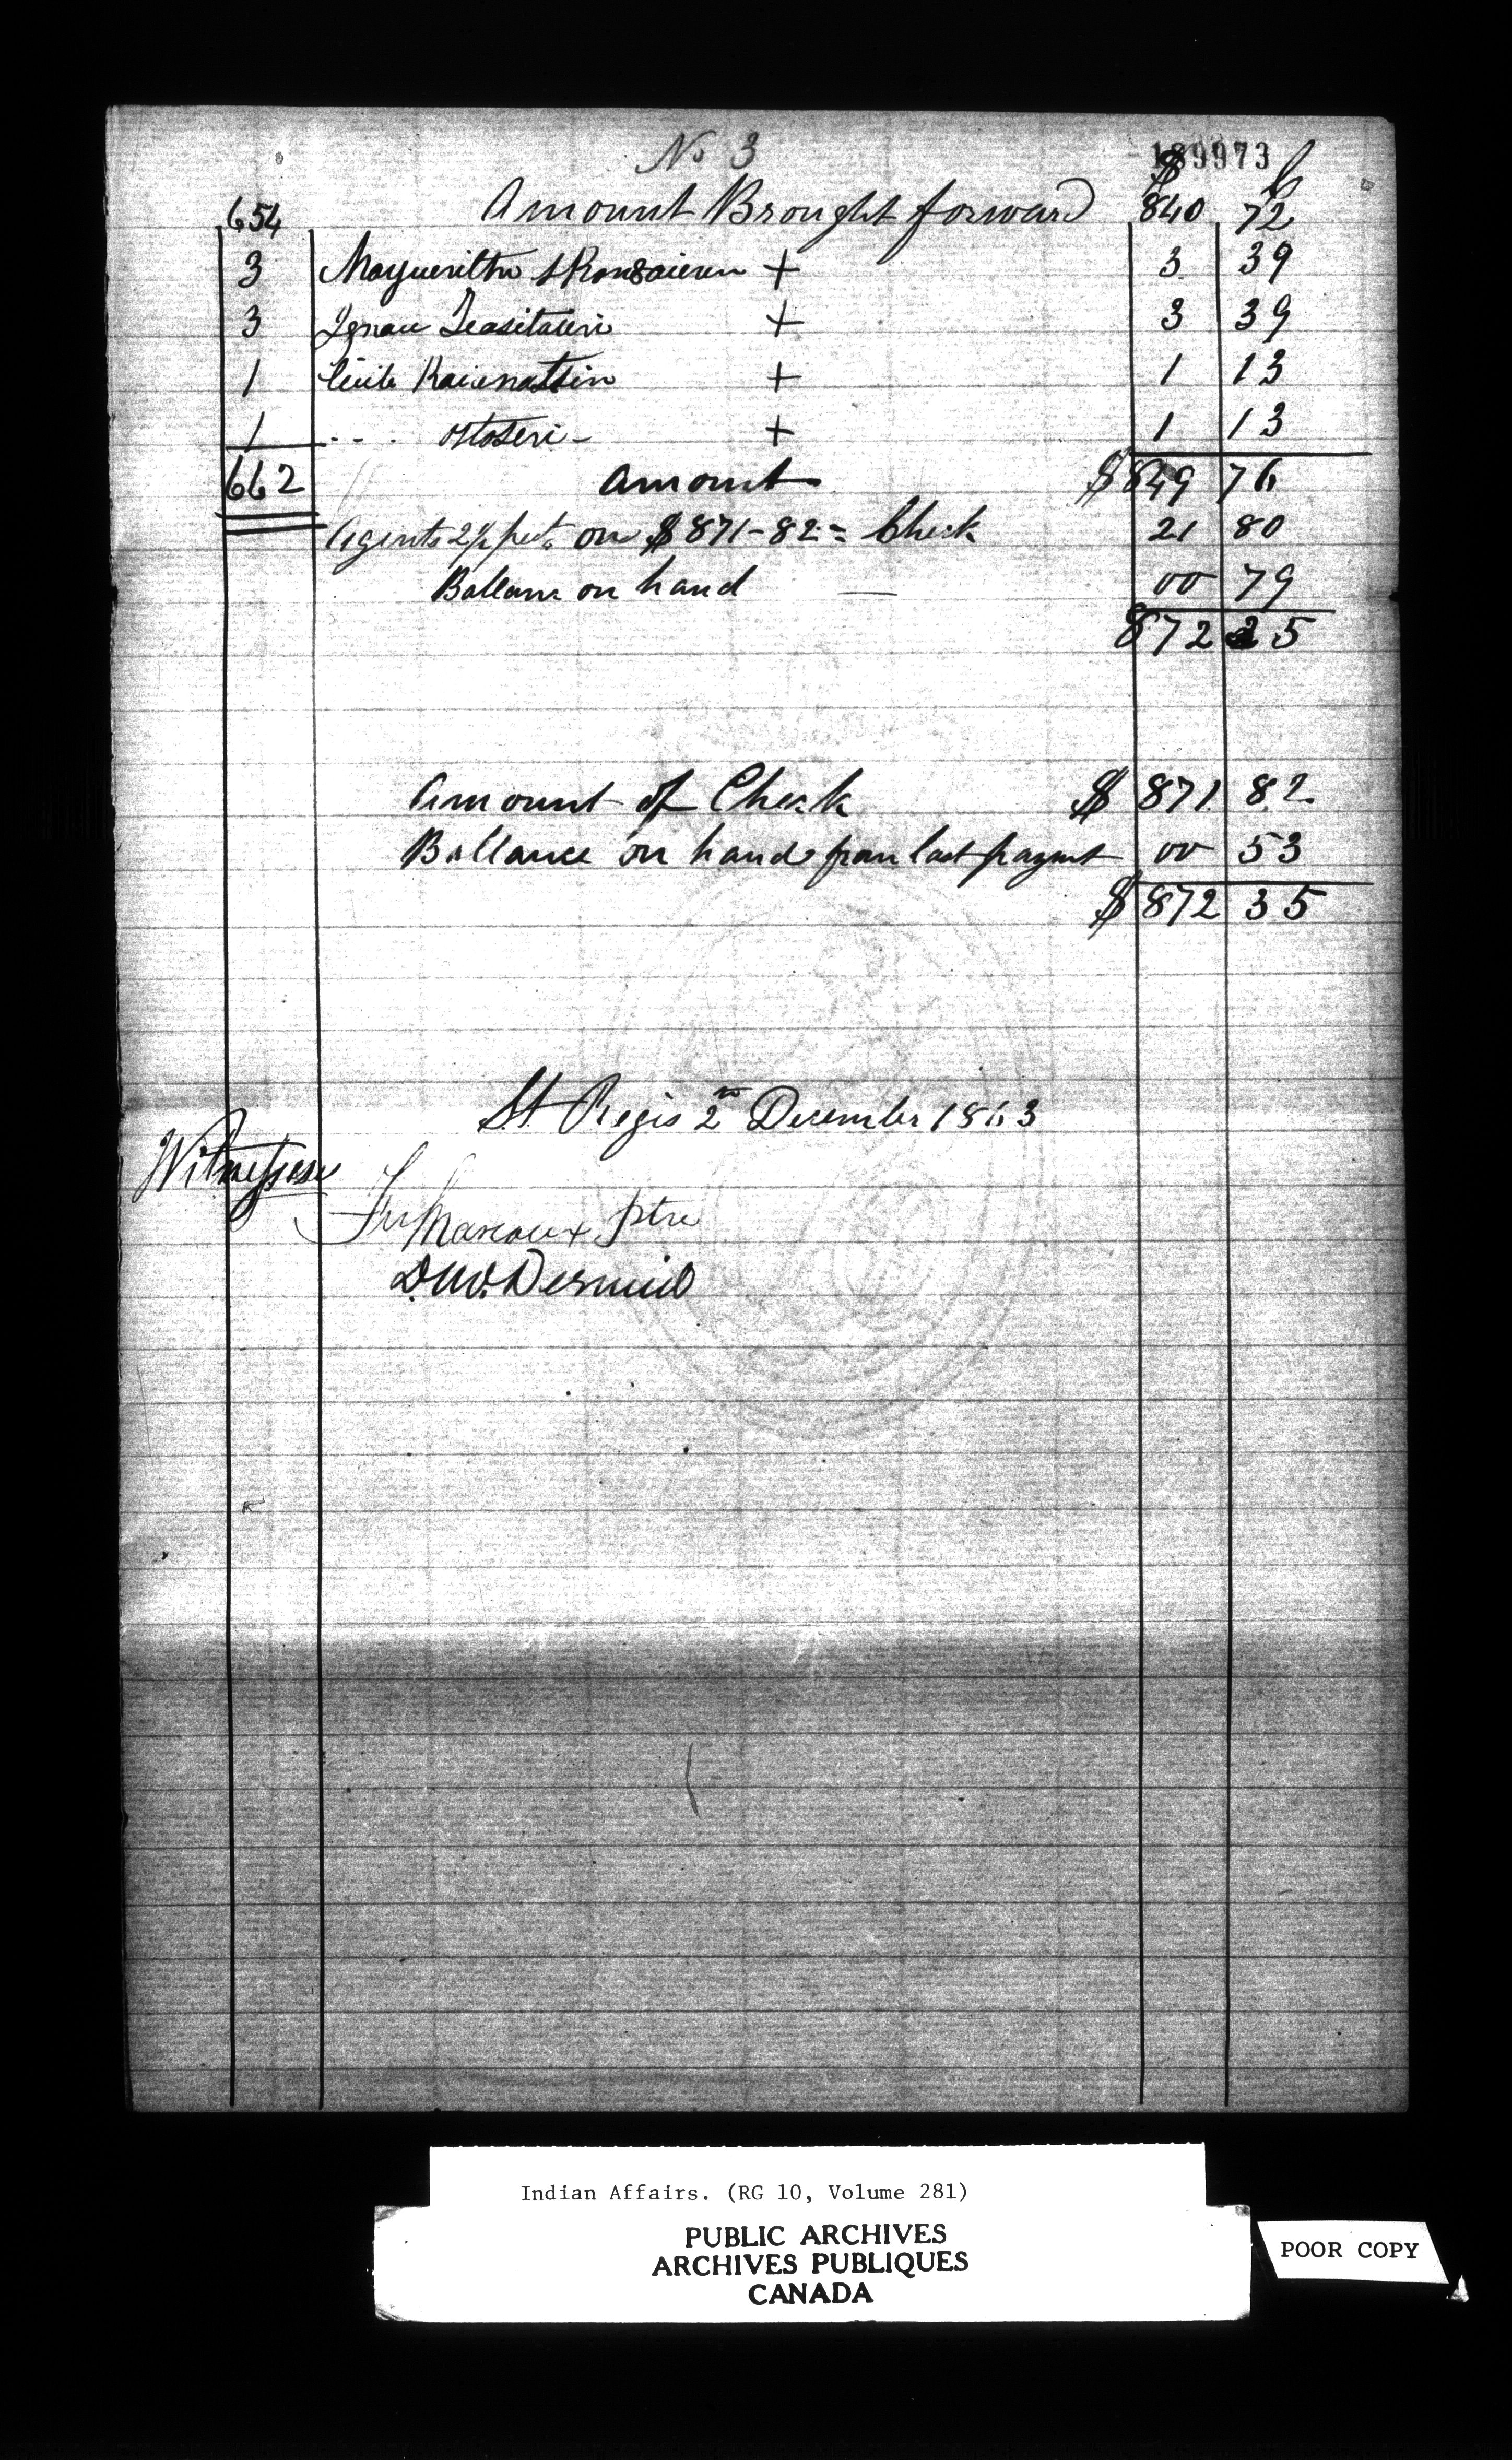 No 3
189973
$ C
654 Amount Brought forward 840 72
3 + 3 39
3 + 3 39
1 + 1 13
1 - - - + 1 13
662 Amount $ 849 76
Agents 2½ pct. on $ 871-82 = Check 21 80
Ballanc on hand — 00 79
872 35
Amount of Check $ 871 82
Ballance on hand from last paymt 00 53
$ 872 35
St Regis 2nd December 1863
Witnesses
Marcoux ptre
Indian Affairs. (RG 10, Volume 281)
PUBLIC ARCHIVES
ARCHIVES PUBLIQUES
CANADA
POOR COPY